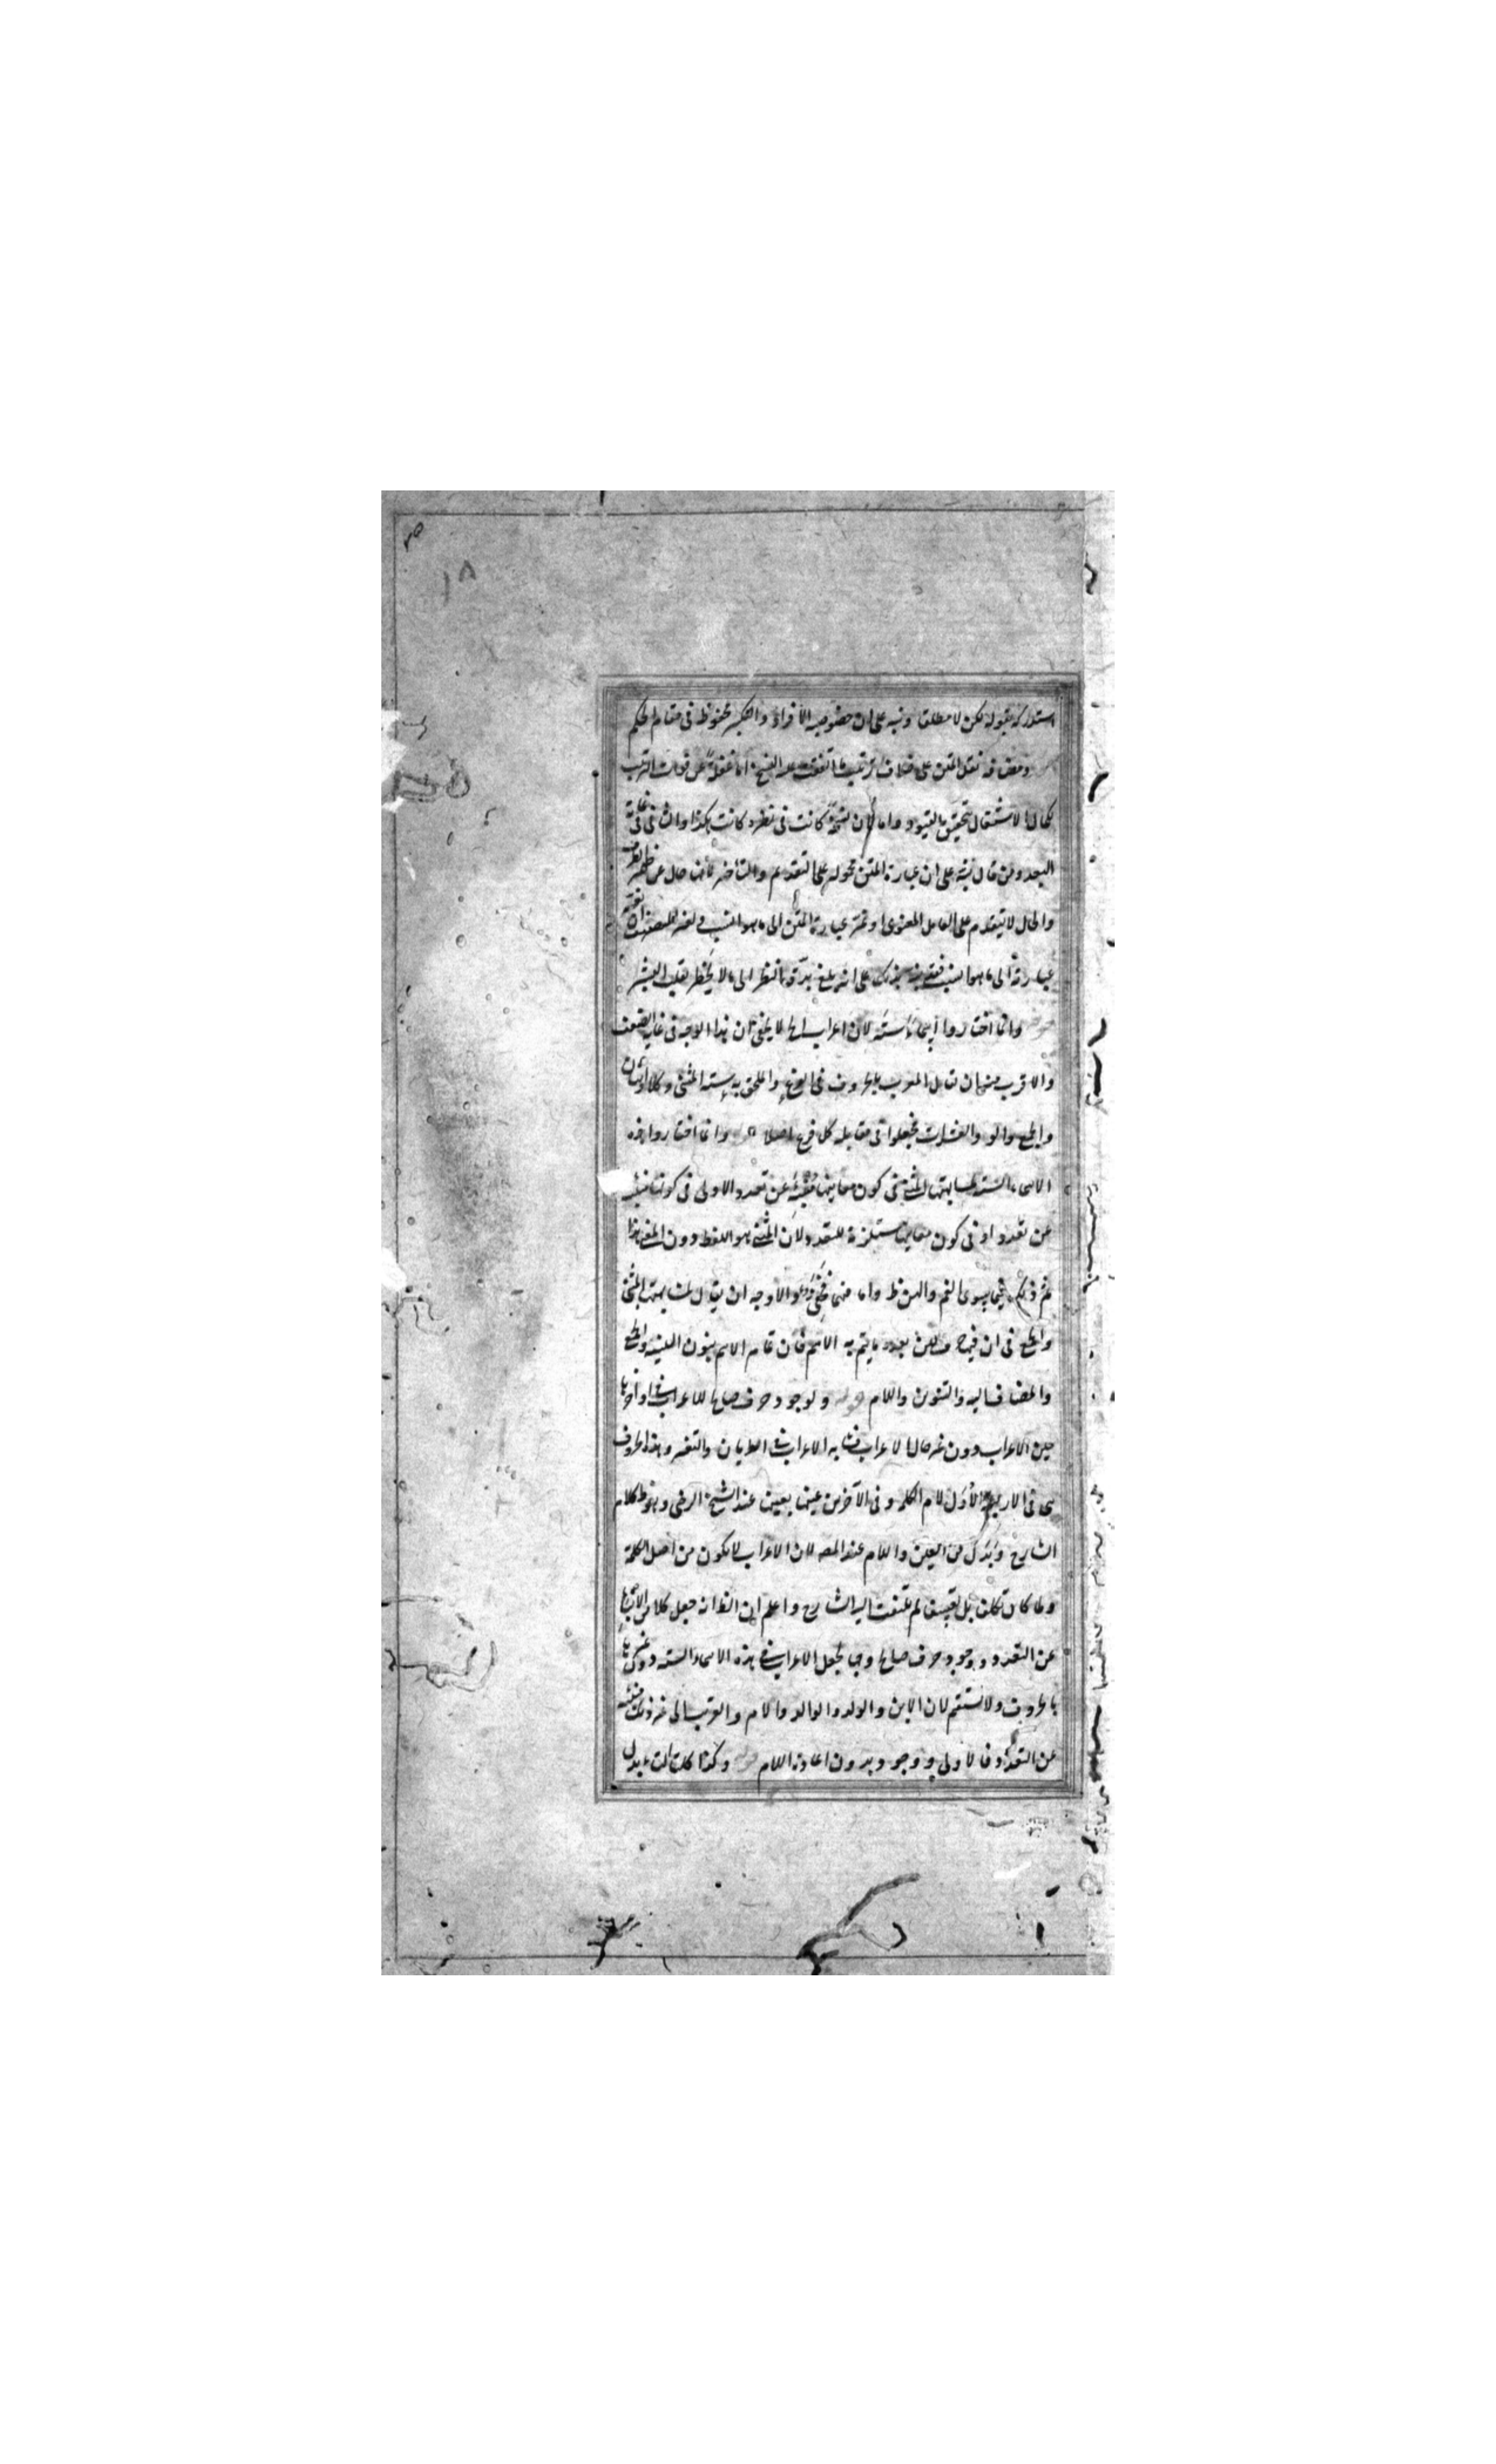 استدركه بقوله لكن لا مطلقا ونبه على ان خصوصية الافراد والتكبير محفوظ في مقام الحكم
ومضافة نقل المتن على خلاف ترتيب ما اتفقت عليه النسخ اما غفلة عن فوات الترتيب
لكمال الاشتغال بتحقيق القيود واما لان نسخة كانت في نظره كانت هكذا والثاني في غاية
البعد ومن قال نبه على ان عبارة المتن محمولة على التقديم والتأخير لانها حال عن
والحال لا يتقدم على العامل المعنوي او غير عبارة المتن الى ما هو انسب
عبارة الى ما هو انسب فقد على انه بلغ بدقة النظر الى ما لا يخطر بقلب البشر
وانما اختاروا اسماء ستة لان اعراب الخ لا يخفى ان هذا الوجه في غاية الضعف
والاقرب منه ان يقابل المعرب بالحروف في الفرع والملحق به ستة المثنى وكلا واثنان
والجمع واولو والعشرات فجعلوا في مقابلة كل فرع اصلا قوله وانما اختاروا هذه
الاسماء الستة لمشابهتها المثنى في كون معانيها منبئة عن تعدد الاولى في كونها منبئة
عن تعدد او في كون معانيها مستلزمة للتعدد لان المثنى هو اللفظ دون المعنى هذا
ثم ذلك فيما سوى الفم والهن ظ واما فيهما فخفي والاوجه ان يقال لمشابهتها المثنى
والجمع في ان فيها حرف لين بعده ما يتم به الاسم فان تمام الاسم بنون التثنية والجمع
والمضاف اليه والتنوين واللام قوله ولوجود حرف صالح للاعراب في اواخرها
حين الاعراب دون غير حال الاعراب فشابه الاعراب في الطريان والتغير وهذه الحروف
هي في الاربعة الاول لام الكلمة وفي الآخرين عينها بعينها عند الشيخ الرضي وهو ظ كلام
الشارح وبدل من العين واللام عند المصه لان الاعراب لا يكون من اصل الكلمة
ولما كان تكلفا بل تعسفا لم يلتفت اليه الشارح واعلم ان الظ انه جعل كلا من الانباء
عن التعدد ووجود حرف صالح وجها لجعل الاعراب في هذه الاسماء الستة دون غيرها
بالحروف ولا يستقيم لان الابن والولد والوالد والام والقريب الى غير ذلك منبئة
عن التعدد فالاولى ووجود بدون اعادة اللام قوله وكذا كلتا التاء بدل